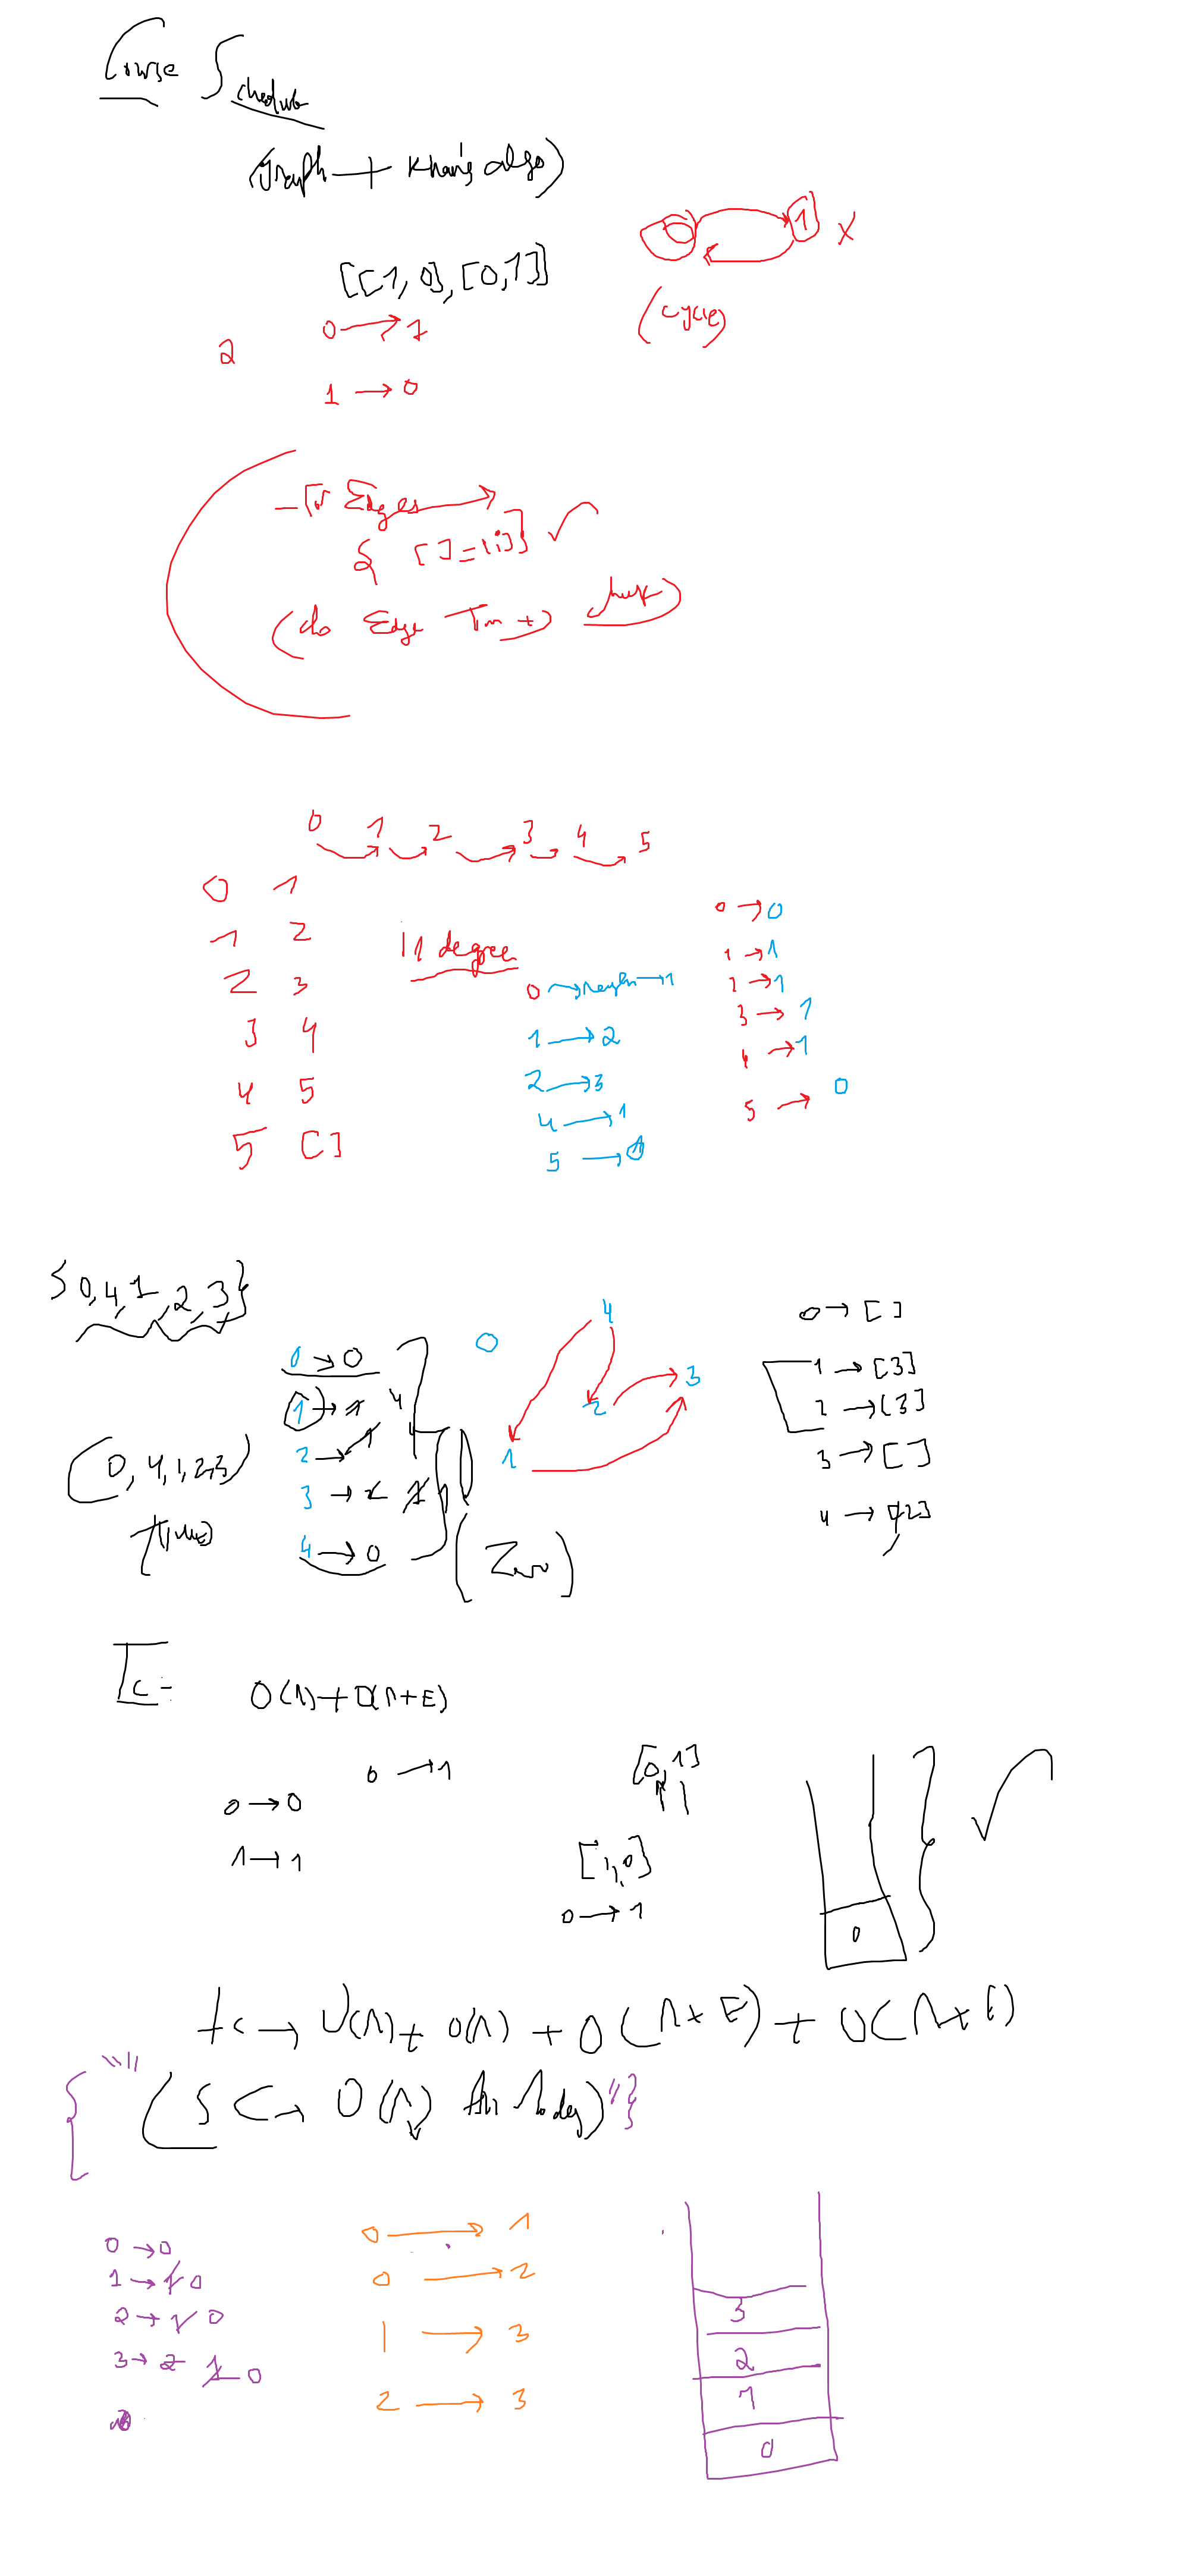 Course Schedule
(Graph + Khan's algo)
[[1, 0], [0,1]]
0 → 1
2
1 → 0
0 1 X
(cycle)
Edges
{ [ ] = [i] }
(do Edge
0 1 2 3 4 5
0 1
1 2
2 3
3 4
4 5
5 [ ]
Indegree
0 → 1
1 → 2
2 → 3
4 → 1
5 → 0
0 → 0
1 → 1
2 → 1
3 → 1
4 → 1
5 → 0
{0,4,1,2,3}
(0,4,1,2,3)
0 → 0
1 → 1
2 → 1
3 → 2 1
4 → 0
(Zero)
0
4
2
3
1
0 → [ ]
1 → [3]
2 → [3]
3 → [ ]
4 → [1,2]
TC = O(N) + O(N+E)
0 → 1
0 → 0
1 → 1
[0,1]
[1,0]
0 → 1
0
TC → O(N) + O(N) + O(N+E) + O(N+E)
{ "(SC → O(N) for Nodes)" }
0 → 0
1 → 1 0
2 → 1 0
3 → 2 1 0
0 → 1
0 → 2
1 → 3
2 → 3
3
2
1
0